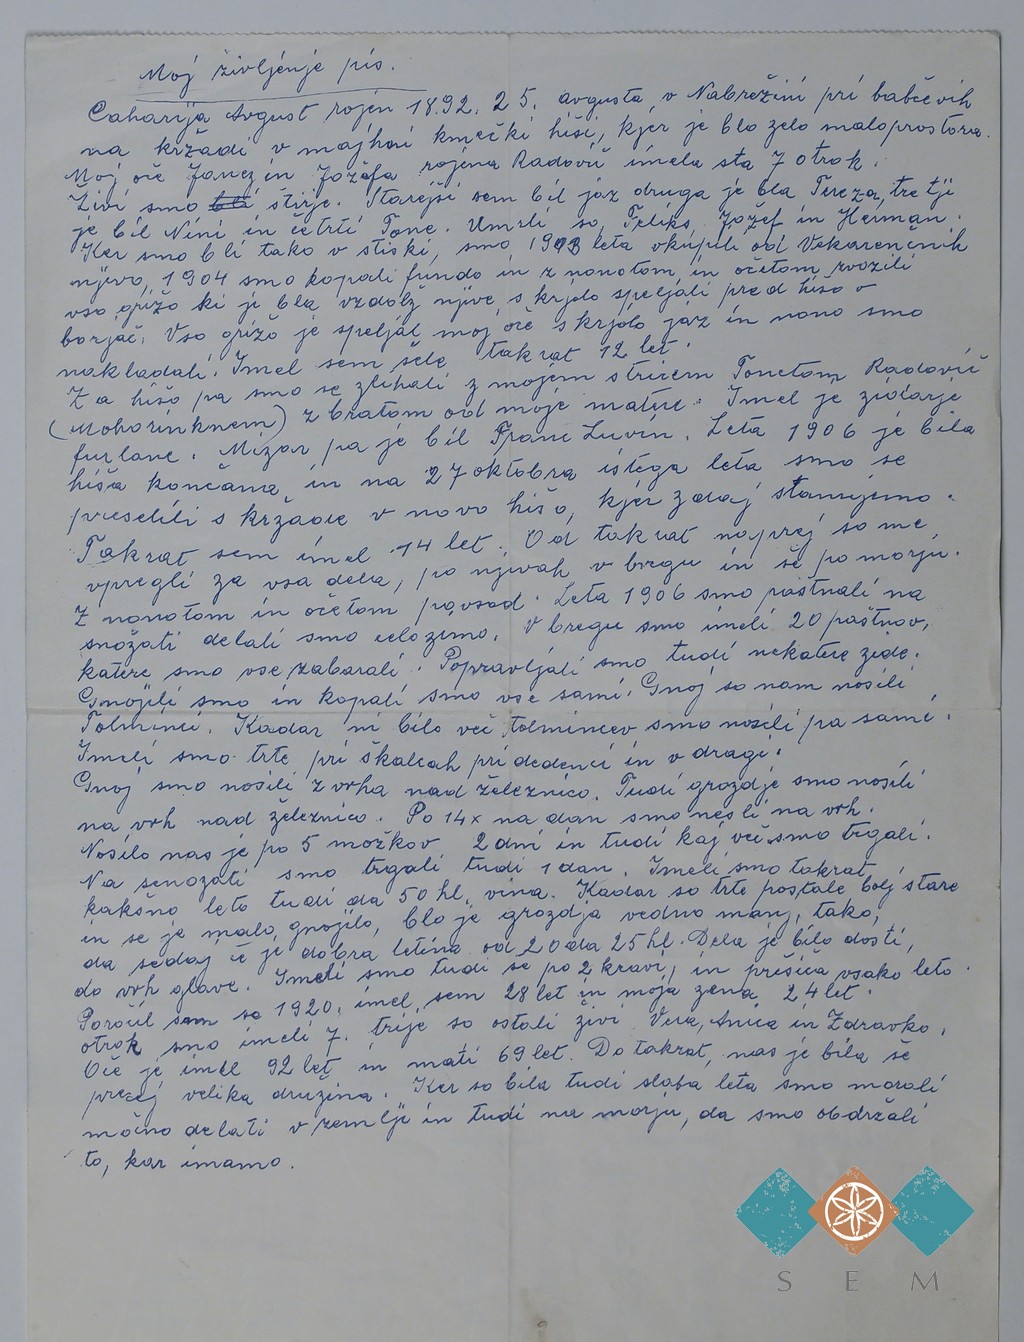 Moj življenje pis.
Caharija Avgust rojen 1892. 25. avgusta, v Nabrežini pri babčevih
na križadi v majhni kmečki hiši, kjer je blo zelo malo prostora.
Moj oče Janez in Jožefa rojena Radovič imela sta 7 otrok.
Živi smo štirje. Starejši sem bil jaz druga je bla Tereza, tretji
je bil Nini in četrti Tone. Umrli so, Feliks, Jožef in Herman.
Ker smo bli tako v stiski, smo 1903 leta vkupili od Vekarenčnih
njivo, 1904 smo kopali fundo in z nonotom in očetom zvozili
vso grižo ki je bla vzdolž njive, s krjolo speljali pred hišo v
borjač. Vso grižo je speljal moj oče s krjolo jaz in nono smo
nakladali. Imel sem šele takrat 12 let.
Za hišo pa smo se zlihali z mojem stricem Tonetom Radovič
(Mohorinknem) z bratom od moje matere. Imel je zidarje
furlane. Mizar pa je bil Franc Luvin. Leta 1906 je bila
hiša končana, in na 27 oktobra istega leta smo se
preselili s kržade v novo hišo, kjer zdaj stanujemo.
Takrat sem imel 14 let. Od takrat naprej so me
vpregli za vsa dela, po njivah v bregu in še po morju.
Z nonotom in očetom povsod. Leta 1906 smo paštnali na
snožati delali smo celo zimo. V bregu smo imeli 20 paštnov,
katere smo vse zabarali. Popravljali smo tudi nekatere zide.
Gnojili smo in kopali smo vse sami. Gnoj so nam nosili
Tolminci. Kadar ni bilo več tolmincev smo nosili pa sami.
Imeli smo trte pri škalcah pri dedenci in v dragi.
Gnoj smo nosili z vrha nad železnico. Tudi grozdje smo nosili
na vrh nad železnico. Po 14x na dan smo nesli na vrh.
Nosilo nas je po 5 možkov 2 dni in tudi kaj več smo trgali.
Na senozati smo trgali tudi 1 dan. Imeli smo takrat,
kakšno leto tudi da 50 hl, vina. Kadar so trte postale bolj stare
in se je malo gnojilo, blo je grozdja vedno manj, tako,
da sedaj če je dobra letina od 20 da 25 hl. Dela je bilo dosti,
do vrh glave. Imeli smo tudi še po 2 kravi, in prešiča vsako leto.
Poročil sem se 1920, imel sem 28 let in moja zena 24 let.
otrok smo imeli 7. trije so ostali živi Vera, Anica in Zdravko.
Oče je imel 92 let in mati 69 let. Do takrat, nas je bila še
precej velika družina. Ker so bila tudi slaba leta smo morali
močno delati v zemlji in tudi na morju, da smo obdržali
to, kar imamo.
SEM